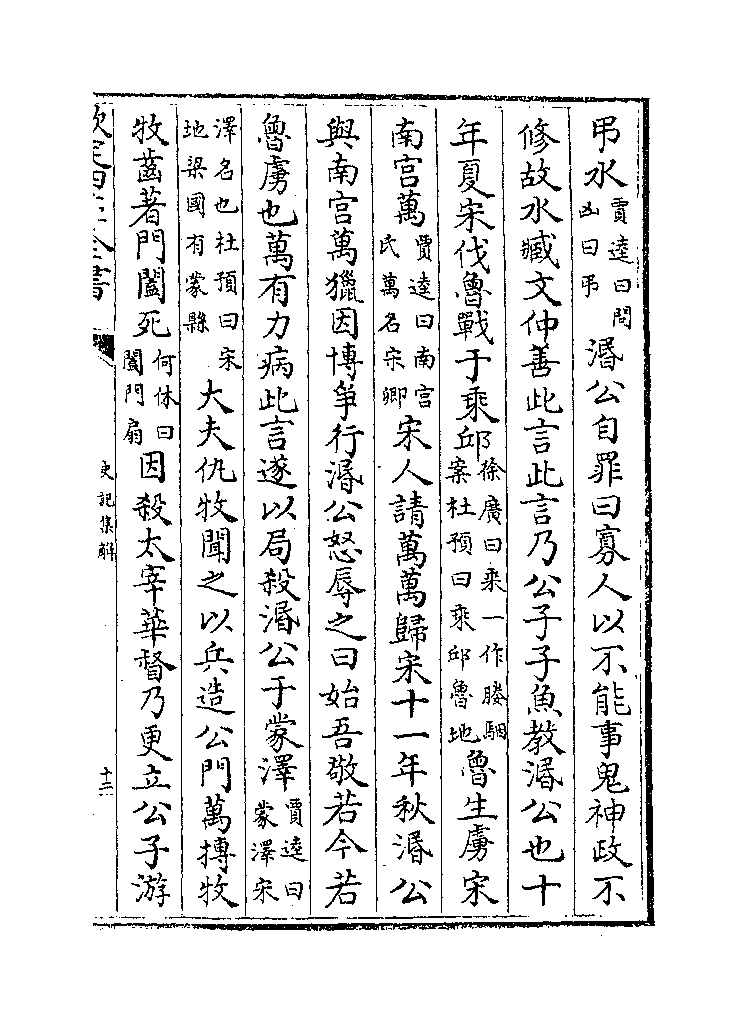 弔水賈逵曰問凶曰弔湣公自罪曰寡人以不能事鬼神政不
修故水臧文仲善此言此言乃公子子魚教湣公也十
年夏宋伐魯戰于乘邱徐廣曰乘一作媵駰案杜預曰乘邱魯地魯生虜宋
南宮萬賈逵曰南宮氏萬名宋卿宋人請萬萬歸宋十一年秋湣公
與南宮萬獵因博爭行湣公怒辱之曰始吾敬若今若
魯虜也萬有力病此言遂以局殺湣公于蒙澤賈逵曰蒙澤宋
澤名也杜預曰宋地梁國有蒙縣大夫仇牧聞之以兵造公門萬搏牧
牧齒著門闔死何休曰闔門扇因殺太宰華督乃更立公子游
欽定四庫全書
史記集解
十二